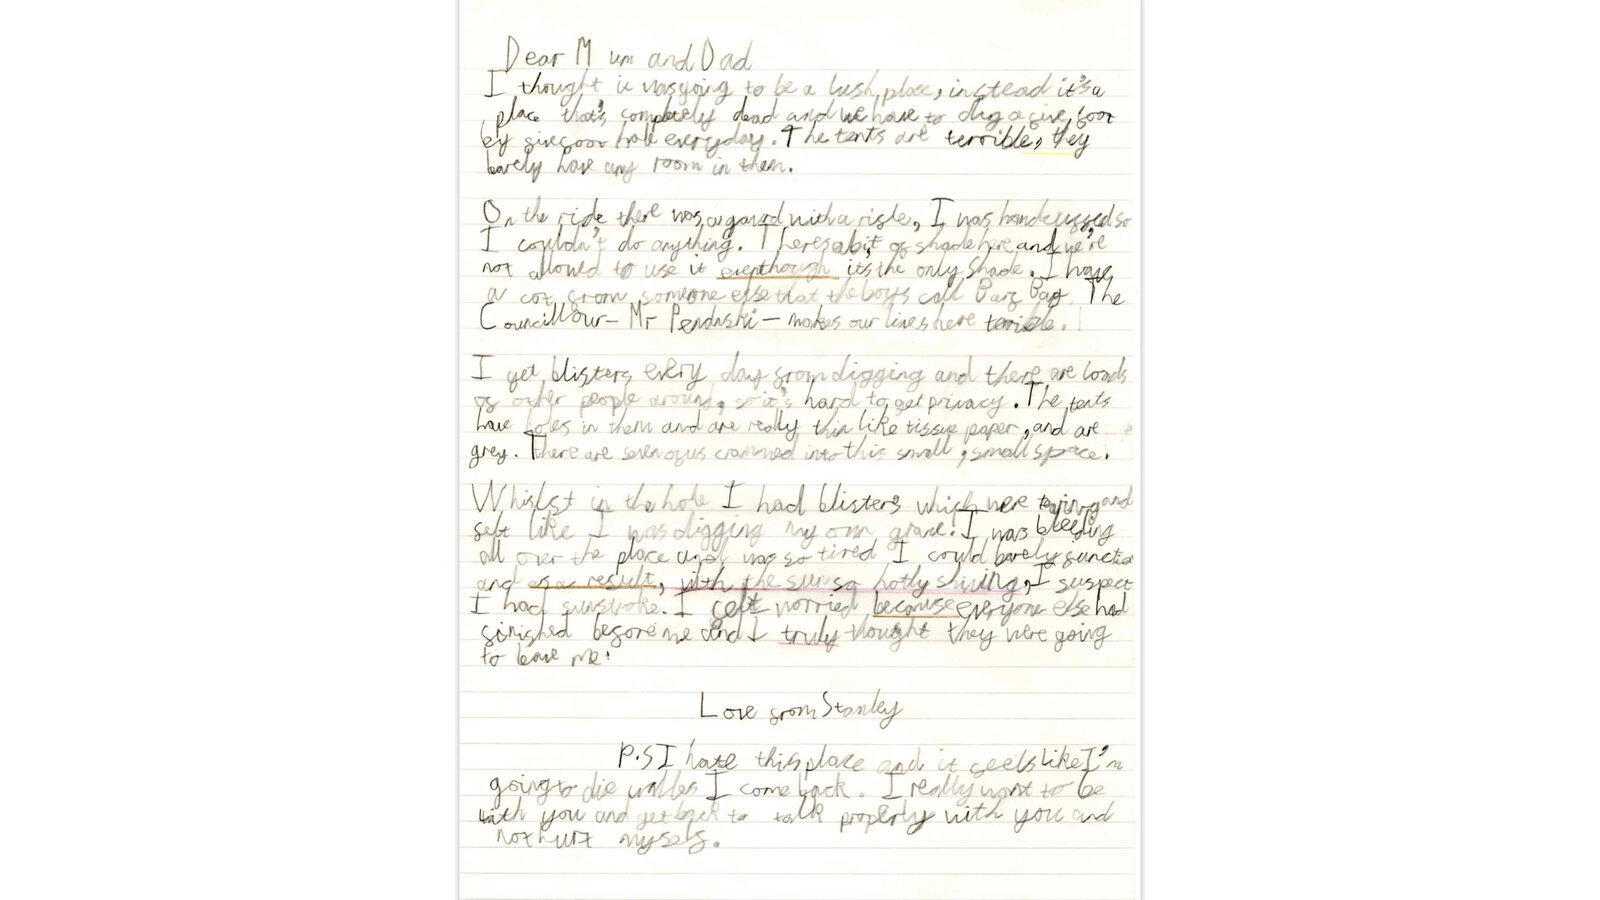 Dear Mum and Dad
I thought it was going to be a lush place, instead it's a
place that's completely dead and we have to dig a five foot
by five foot hole everyday. The tents are terrible, they
barely have any room in them.
On the ride there was a guard with a rifle, I was handcuffed so
I couldn't do anything. Theres a bit of shade here and we're
not allowed to use it eventhough its the only shade. I have
a cot from someone else that the boys call Barf Bag. The
Councillour - Mr Pendaski - makes our lives here terrible.
I get blisters every day from digging and there are loads
of other people around, so it's hard to get privacy. The tents
have holes in them and are really thin like tissue paper, and are
grey. There are seven of us crammed into this small, small space.
Whislst in the hole I had blisters which were and
felt like I was digging my own grave. I was bleeding
all over the place and was so tired I could barely function
and as a result, with the sun so hotly shining, I suspect
I had sunstroke. I felt worried because everyone else had
finished before me and I truly thought they were going
to leave me.
Love from Stanley
P.S I hate this place and it feels like I'm
going to die I come back. I really want to be
with you and get back to talk properly with you and
not hurt myself.